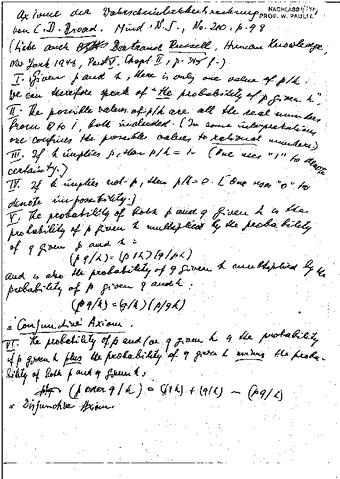 NACHLASS
PROF. W. PAULI
Axiome der Wahrscheinlichkeitsrechnung
von C. D. Broad. Mind, N.S., No. 210, p. 98
(Siehe auch Bertrand Russell, Human Knowledge,
New York 1948, Part V, Chapt. II, p. 345 f.)
I. Given p and h, there is only one value of p/h.
We can therefore speak of "the probability of p given h".
II. The possible values of p/h are all the real numbers
from 0 to 1, both included. (In some interpretations
one confines the possible values to rational numbers)
III. If h implies p, then p/h = 1. (One uses "1" to denote
certainty.)
IV. If h implies not-p, then p/h = 0. (One uses "0" to
denote impossibility.)
V. The probability of both p and q given h is the
probability of p given h multiplied by the probability
of q given p and h:
(pq/h) = (p/h) (q/ph)
and is also the probability of q given h multiplied by the
probability of p given q and h:
(pq/h) = (q/h) (p/qh)
= Conjunctive Axiom.
VI. The probability of p and/or q given h is the probability
of p given h plus the probability of q given h minus the proba-
bility of both p and q given h:
(p or q/h) = (p/h) + (q/h) – (pq/h)
= Disjunctive Axiom.